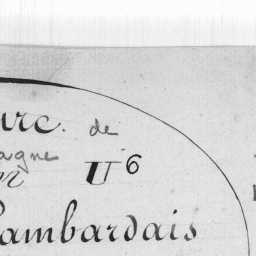 urc. de
agne
U6
ambardais